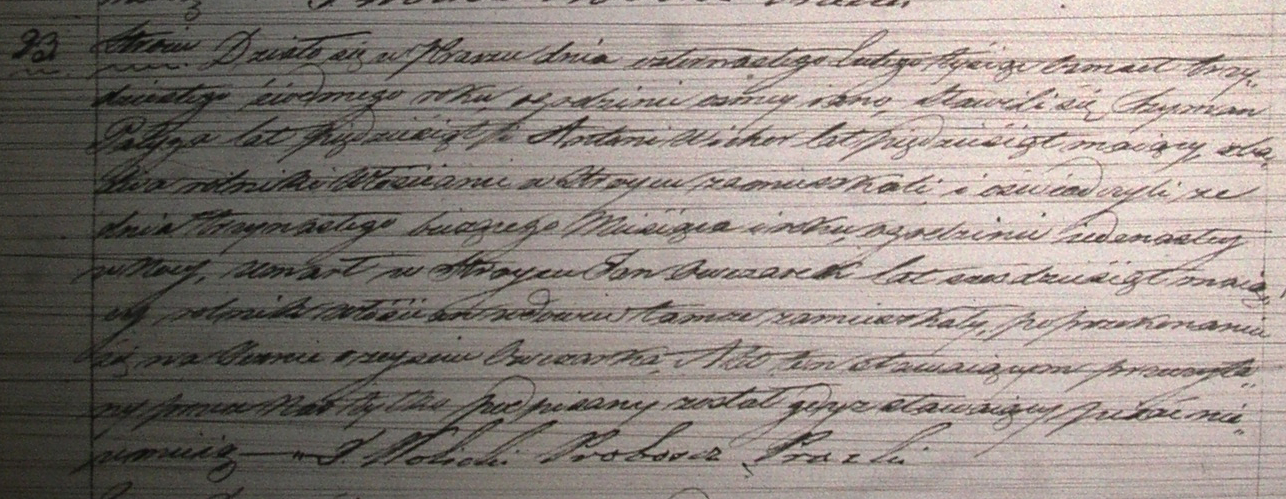 23 Stroiec Działo się w Praszce dnia czternastego Lutego tysiąc ośmset trzy„
dziestego siodmego roku o godzinie osmej rano, stawili się Szymon
Patyga lat trzydzieści Antoni Wicher lat pięćdziesiąt maiący, oba„
dwa rolniki włościanie w Stroycu zamieszkali, i oświadczyli, że
dnia trzynastego bieżącego Miesiąca i roku, o godzinie iedenastey
w nocy, umarł w Stroycu Jan Owczarek lat sześdziesiąt maią„
cy rolnik włościan wdowiec tamże zamieszkały, po przekonaniu
się na Ciemie o zeyściu Owczarka, Akt ten stawaiącym przeczyta„
ny przez Nas tylko podpisany został gdyż stawaiący pisać nie„
umieią — J. Wolicki Proboszcz Praszki